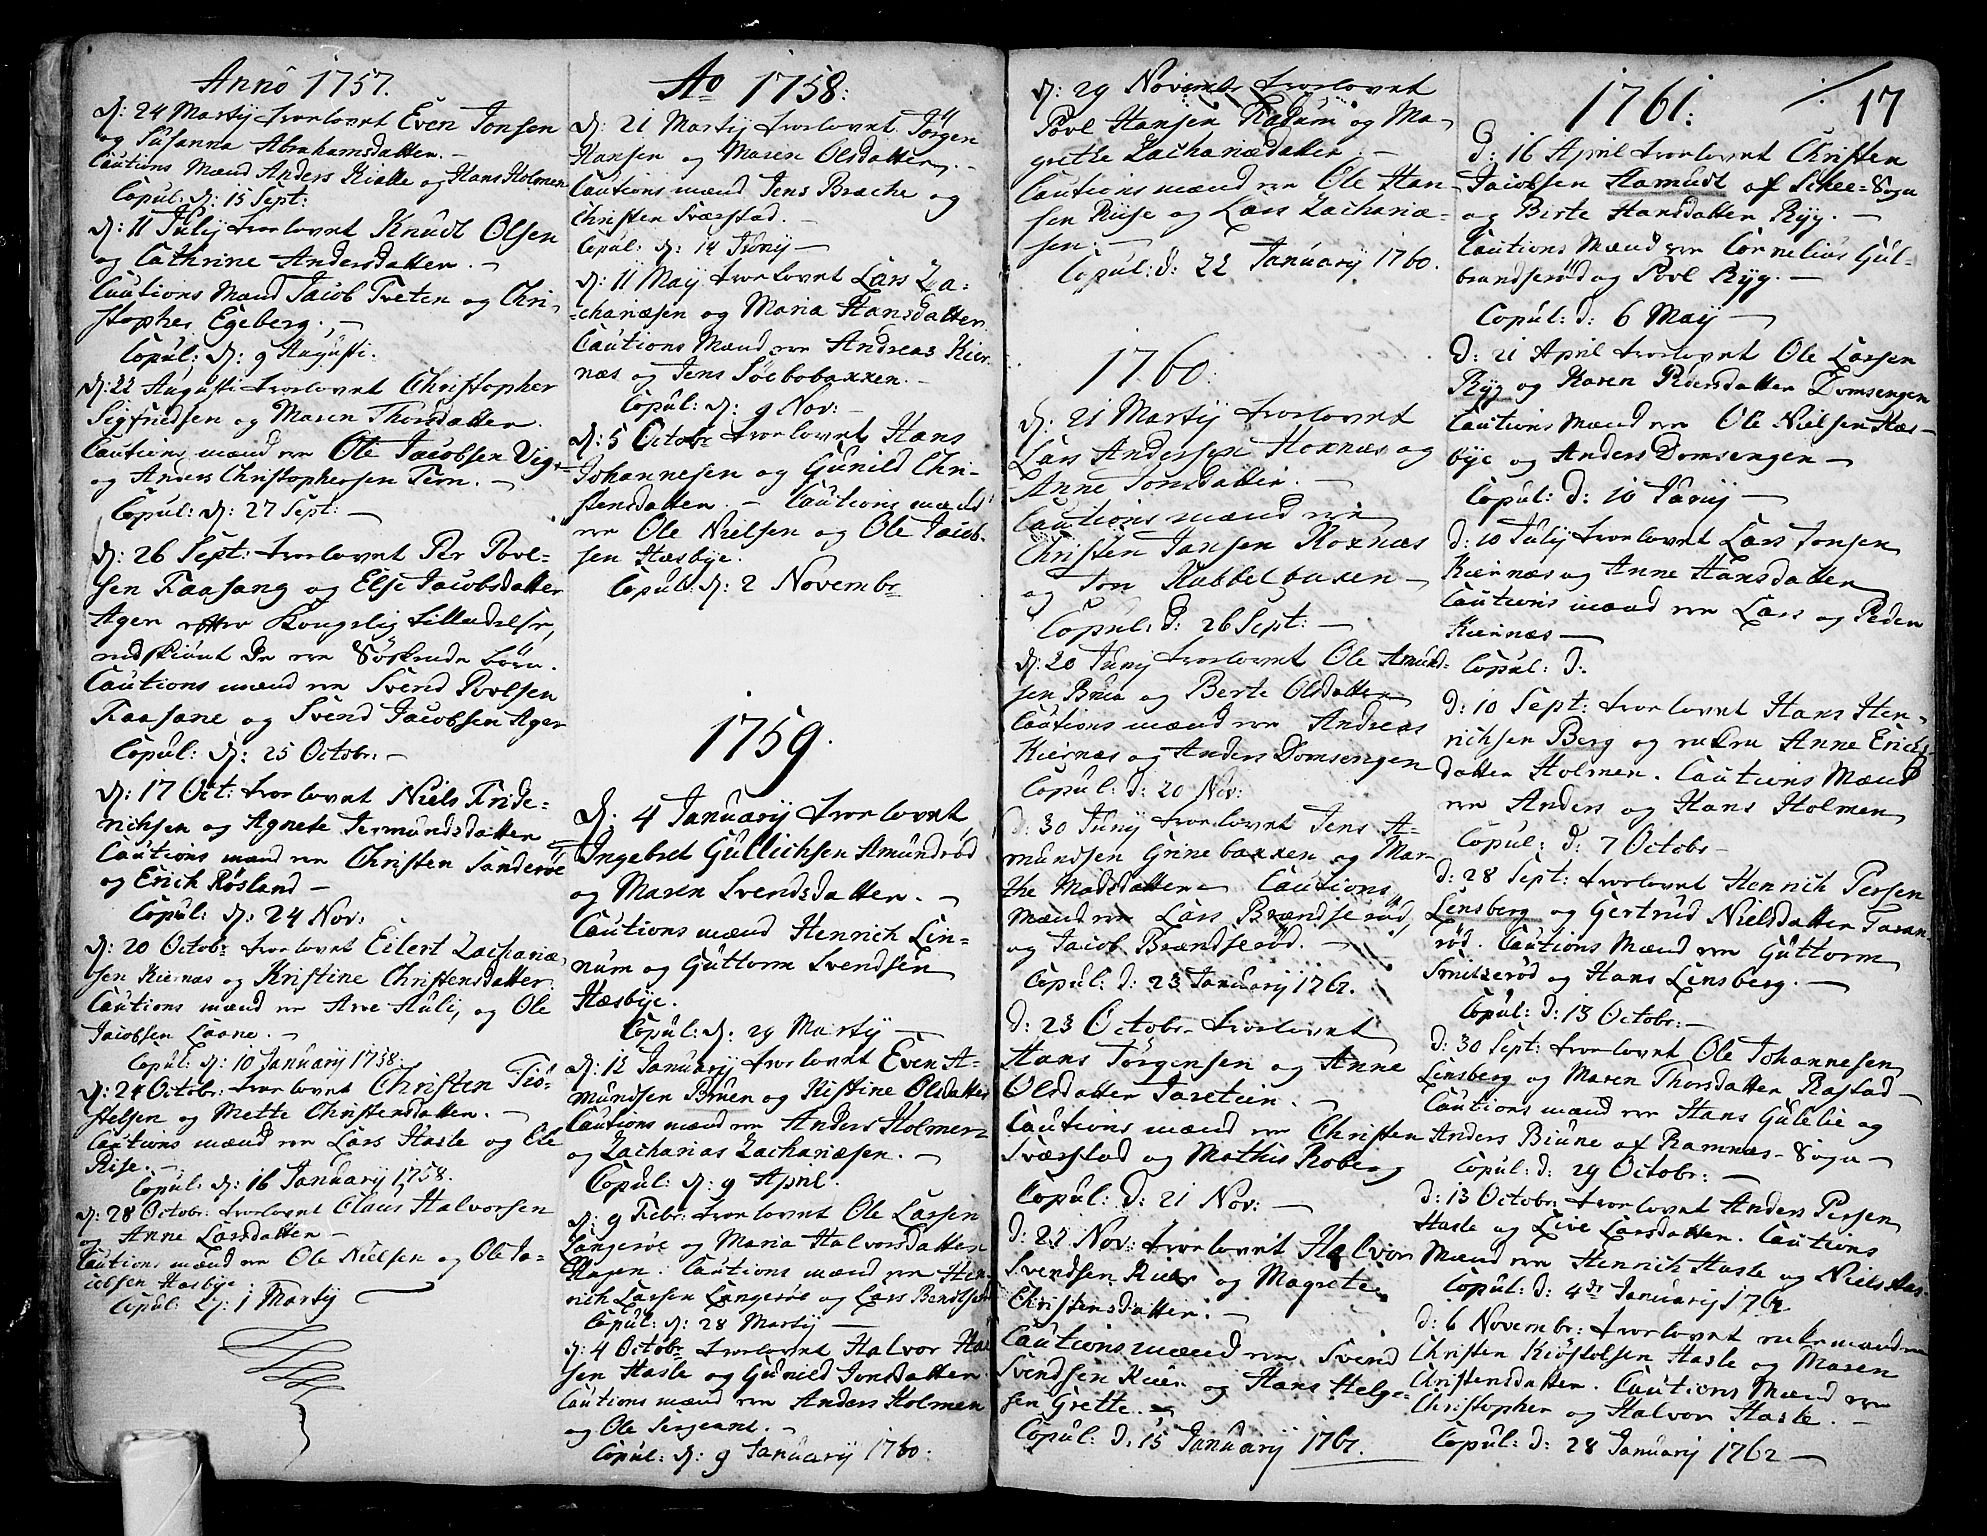 Anno 1757.
d: 24 Martij trorlovet Even Jonsen
og Susanna Abrahamsdatter. –
Cautions Mænd Anders Kiølle og Hans Holmen
Copul: d: 15 Sept:
d: 11 Julij trorlovet Knudt Olsen
og Cathrine Andersdatter. –
Cautions Mænd Jacob Tveten og Chri-
stopher Egeberg. –
Copul: d: 9 Augusti.
d: 22 Augusti trorlovet Christopher
Sigfredsen og Maren Thorsdatter.
Cautions mænd ere Ole Jacobsen Vig
og Anders Christophersen Tem. –
Copul: d: 27 Sept: –
d: 26 Sept: trorlovet Per Povel-
sen Faasang og Else Jacobsdatter
Ager efter Kongelig tilladelse,
endskiønt de ere Søskende børn.
Cautions mænd ere Svend Povlsen
Faasane og Svend Jacobsen Ager
Copul: d: 25 Octobr: –
d: 17 Oct: trorlovet Niels Fride-
richsen og Agnete Jermundsdatter
Cautions mænd ere Christen Sanderøe
og Erich Røsland –
Copul: d: 24 Nov:
d: 20 Octobr trorlovet Eilert Zachariæ
sen Kiernæs og Kristine Christensdatter.
Cautions mænd ere Arve Huli, og Ole
Jacobsen Laane. –
Copul: d: 10 Januarij 1758.
d: 24 Octobr: trorlovet Christen Tiø-
stelsen og Mette Christensdatter. –
Cautions mænd ere Lars Hasle og Ole
Rise. –
Copul: d: 16 Januarij 1758.
d: 28 Octobr: trorlovet Claus Halvorsen
og Anne Larsdatter –
Cautions mænd ere Ole Nielsen og Ole Ja-
cobsen Hæsbye
Copul: d: 1 Martij
Ao 1758:
d: 21 Martij trorlovet Jörgen
Hansen og Maren Olsdatter. –
Cautions mænd Jens Bræche og
Christen Sværstad. –
Copul: d: 14 Junij –
d: 11 Maij trorlovet Lars Za-
chariæsen og Maria Hansdatter
Cautions Mænd ere Andreas Kier
næs og Jens Söebobakken. –
Copul: d: 9 Nov: –
d: 5 Octobr trorlovet Hans
Johannesen og Gunild Chri-
stensdatter. – Cautions mænd
ere Ole Nielsen og Ole Jacob-
sen Hæsbye.
Copul: d: 2 Novembr
1759.
d: 4 Januarij trorlovet
Ingebret Gullichsen Amundrød
og Maren Svendsdatter. –
Cautions mænd Henrich Lin-
num og Guttorm Svendsen
Hæsbye.
Copul: d: 29 Martij –
d: 12 Januarij trorlovet Even A-
mundsen Bruen og Kistine Olsdatter
Cautions mænd ere Anders Holmen
og Zacharias Zachariæsen. –
Copul: d: 9 April.
d: 9 Febr: trorlovet Ole Larsen
Langerøe og Maria Halvorsdatter
Hagen. Cautions mænd ere Hen
rich Larsen Langerøe og Lars Bendtsen
Copul: d: 28 Martij –
d: 4 Octobr trorlovet Halvor Hal
sen Hasle og Gunild Jonsdatter
Cautions mænd ere Anders Holmen
og Ole Sergeant. –
Copul: d: 9 Januarij 1760.
d: 29 Novembr trorlovet
Povl Hansen Kadum og Ma-
grette Zachariædatter. –
Cautions mænd ere Ole Han-
sen Ruse og Lars Zachariæ-
sen. –
Copul: d: 22 Januarij 1760.
1760.
d: 21 Martij trorlovet
Lars Andersen Hoxnæs og
Anne Jonsdatter. –
Cautions mænd ere
Christen Jansen Hoxnæs
og Jon Kabbelbaxen –
Copul: d: 26 Sept: –
d: 20 Junij trorlovet Ole Amund-
sen Brua og Berte Olsdatter
Cautions mænd ere Andreas
Kiernæs og Anders Domsengen
Copul: d: 20 Nov:
d: 30 Junij trorlovet Jens A-
mundsen Grinebakken og Mar-
the Madsdatter Cautions
Mænd ere Lars Brændserød,
og Jacob Brændserød. –
Copul: d: 23 Januarij 1761.
d: 23 Octobr trorlovet
Hans Jörgensen og Anne
Olsdatter Taretien. –
Cautions mænd ere Christen
Sværstad og Mathis Roberg
Copul: d: 21 Nov: –
d: 22 Nov: trorlovet Halvor
Svendsen Kiær og Magrete
Christensdatter. –
Cautions mænd ere Svend
Svendsen Kiær og Hans Helge-
sen Grette. –
Copul: d: 15 Januarij 1761.
17
1761:
d: 16 April trorlovet Christen
Jacobsen Hamudt af Schee-Sogn
og Berte Hansdatter Ryg. –
Cautions Mænd ere Cornelius Gul-
brandserød og Povl Ryg. –
Copul: d: 6 Maij –
d: 21 April trorlovet Ole Larsen
Ryg og Karen Pedersdatter Domsengen
Cautions mænd ere Ole Nielsen Hæs-
bye og Anders Domsengen –
Copul: d: 10 Junij –
d: 10 Julij trorlovet Lars Jonsen
Kiernæs og Anne Hansdatter
Cautions mænd ere Lars og Peder
Kiernæs –
Copul: d.
d: 10 Sept: trorlovet Hans Hen-
richsen Berg og enken Anne Erichs-
datter Holmen. Cautions Mænd
ere Anders og Hans Holmen
Copul: d: 7 Octobr –
d: 28 Sept: trorlovet Henrich Persen
Linsberg og Gertrud Nielsdatter Taran-
rød. Cautions Mænd ere Guttorm
Smitserød og Hans Linsberg. –
Copul: d: 13 Octobr: –
d: 30 Sept: trorlovet Ole Johannesen
Linsberg og Maren Thorsdatter Rastad –
Cautions mænd ere Hans Gulelie og
Anders Biune af Ramnæs-Sogn –
Copul: d: 29 Octobr: –
d: 13 Octobr: trorlovet Anders Persen
Hasle og Live Larsdatter. Cautions
Mænd ere Henrich Hasle og Niels Has-
Copul: d: 4de Januarij 1762
d: 6 Novembr: trorlovet enkemanden
Christen Kiøstolsen Hasle og Maren
Christensdatter. Cautions Mænd ere
Christopher og Halvor Hasle. –
Copul: d: 28 Januarij 1762 –